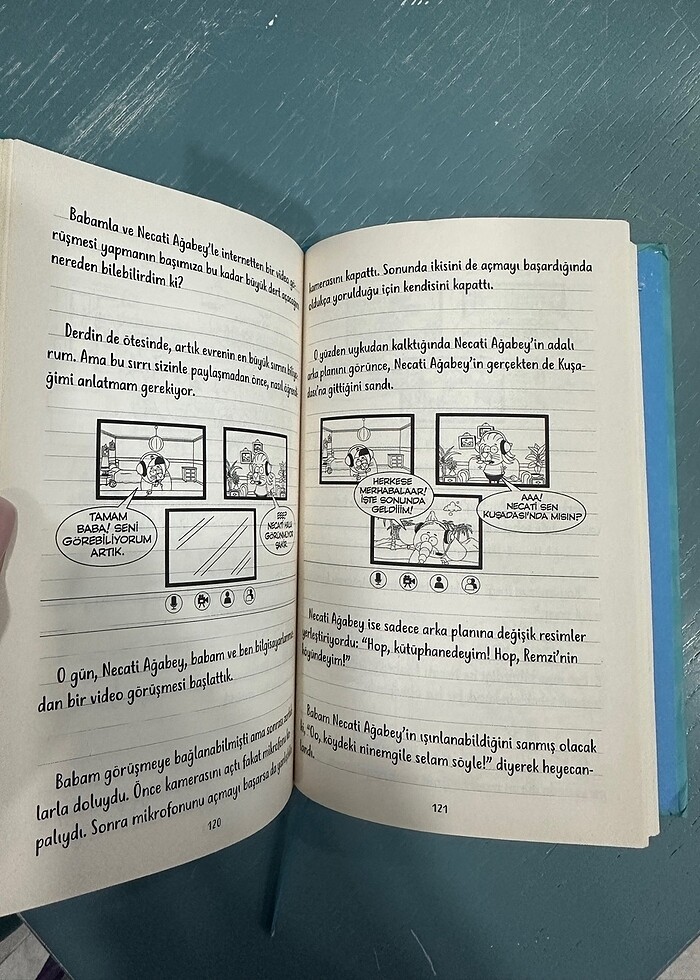 Babamla ve Necati Ağabey'le internetten bir video gö-
rüşmesi yapmanın başımıza bu kadar büyük dert açacağını
nereden bilebilirdim ki?
Derdin de ötesinde, artık evrenin en büyük sırrını biliyo-
rum. Ama bu sırrı sizinle paylaşmadan önce, nasıl öğrendi-
ğimi anlatmam gerekiyor.
TAMAM
BABA! SENİ
GÖREBİLİYORUM
ARTIK.
EEE?
NECATİ HALA
GÖRÜNMÜYOR
ŞAKİR.
O gün, Necati Ağabey, babam ve ben bilgisayarlarımız-
dan bir video görüşmesi başlattık.
Babam görüşmeye bağlanabilmişti ama sonrası
larla doluydu. Önce kamerasını açtı fakat mikrofonu ka-
palıydı. Sonra mikrofonunu açmayı başarsa da
120
kamerasını kapattı. Sonunda ikisini de açmayı başardığında
oldukça yorulduğu için kendisini kapattı.
O yüzden uykudan kalktığında Necati Ağabey'in adalı
arka planını görünce, Necati Ağabey'in gerçekten de Kuşa-
dası'na gittiğini sandı.
HERKESE
MERHABALAAR!
İŞTE SONUNDA
GELDİİİM!
AAA!
NECATİ SEN
KUŞADASI'NDA MISIN?
Necati Ağabey ise sadece arka planına değişik resimler
yerleştiriyordu: "Hop, kütüphanedeyim! Hop, Remzi'nin
köyündeyim!"
Babam Necati Ağabey'in ışınlanabildiğini sanmış olacak
ki, "Oo, köydeki ninemgile selam söyle!" diyerek heyecan-
landı.
121